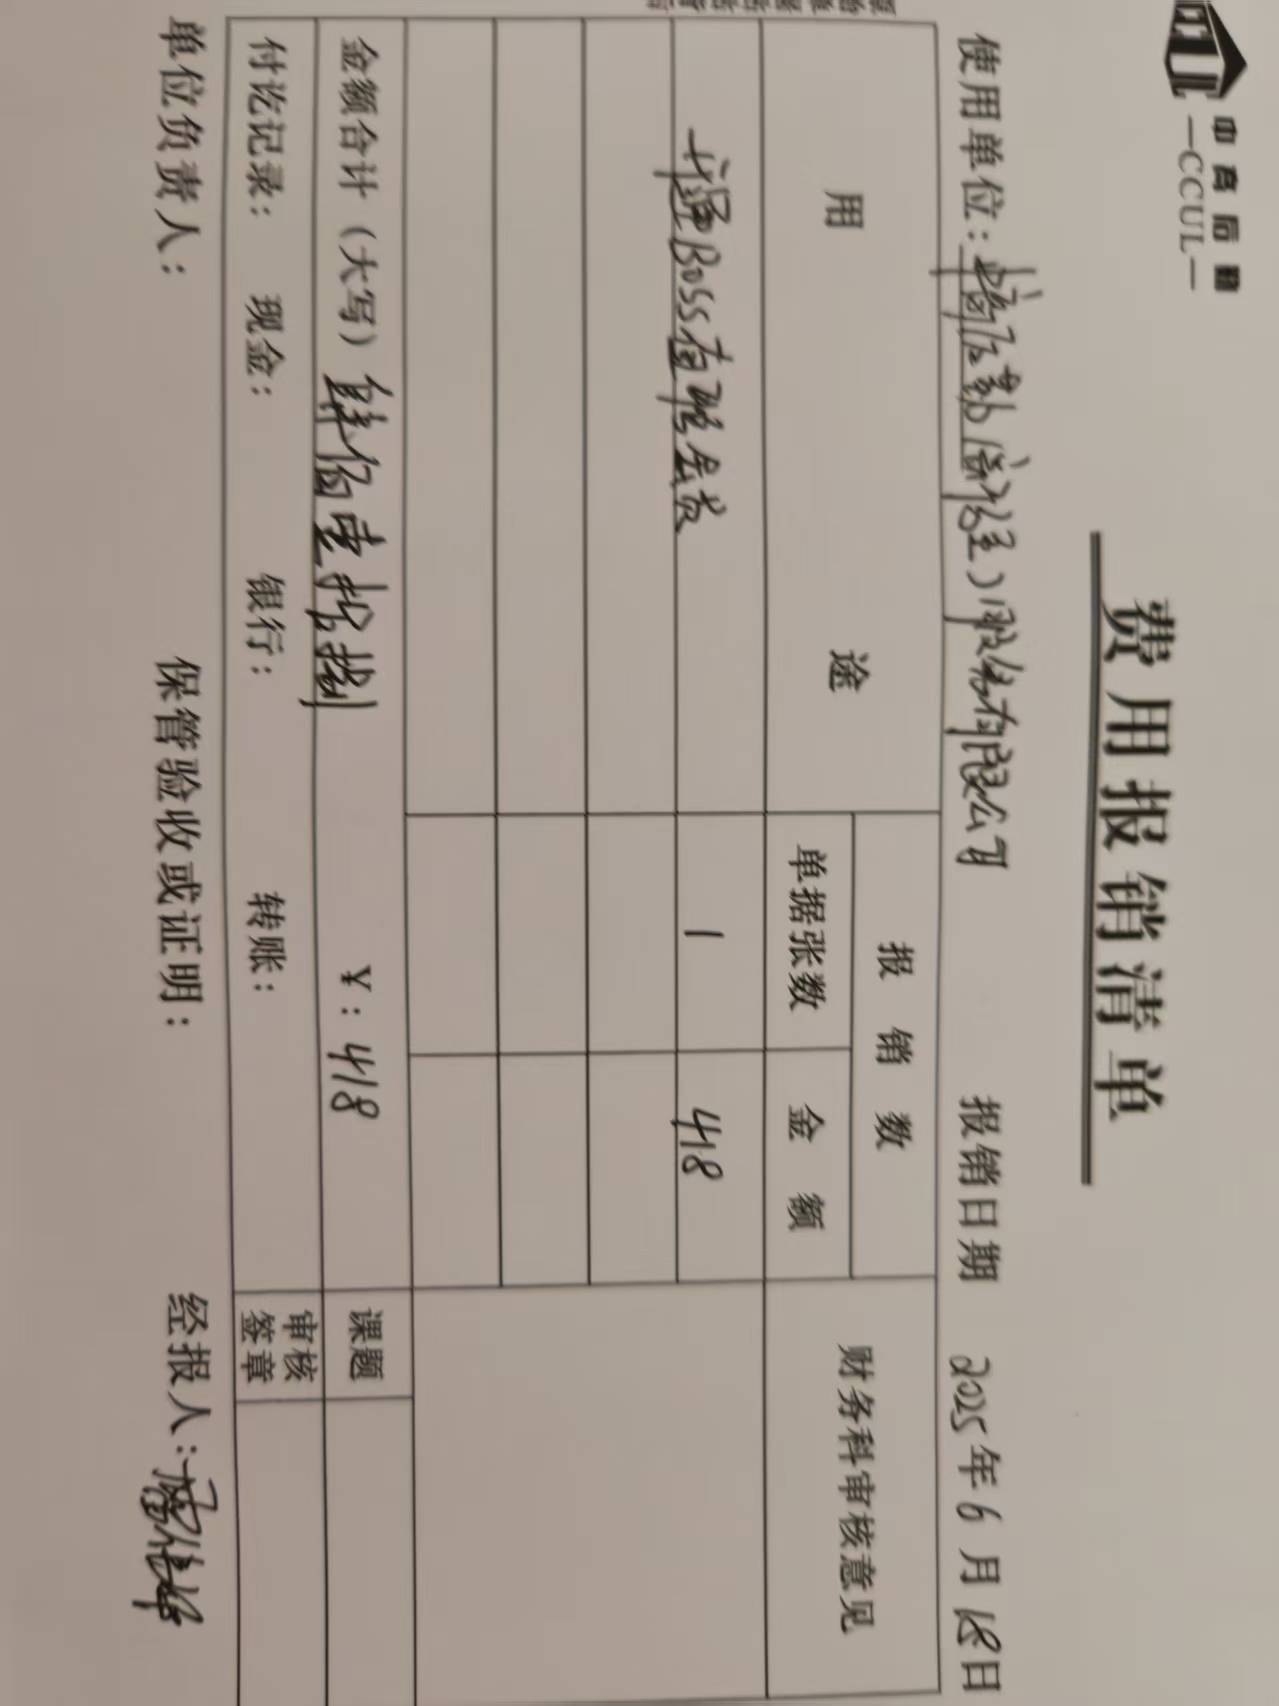 中商后勤
—CCUL—
费用报销清单
使用单位：中商后勤（武汉）股份有限公司 报销日期 2025年6月18日
用 途 报销数 财务科审核意见
单据张数 金额
开通BOSS直聘会员 1 418
金额合计（大写）肆佰壹拾捌 ￥：418 课题
付讫记录： 现金： 银行： 转账： 审核签章
单位负责人： 保管验收或证明： 经报人：